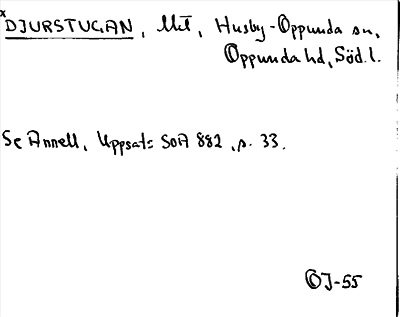 *DJURSTUGAN, Mt, Husby-Oppunda sn,
Oppunda hd, Söd. l.
Se Annell, Uppsats SOA 882, p. 33.
OJ-55